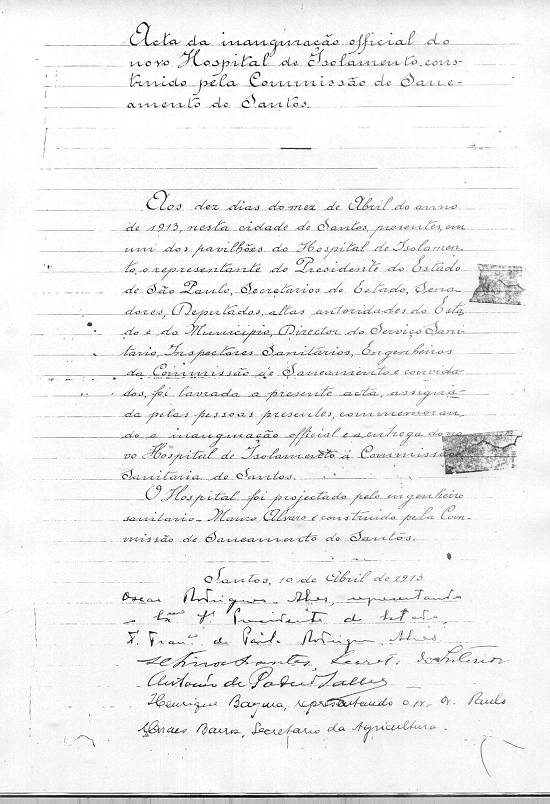 Acta da inauguração official do
novo Hospital de Isolamento, cons-
truido pela Commissão de Sane-
amento de Santos.
Aos dez dias do mez de Abril do anno
de 1913, nesta cidade de Santos, presentes, em
um dos pavilhões do Hospital de Isolamen-
to, o representante do Presidente do Estado
de São Paulo, Secretarios de Estado, Sena-
dores, Deputados, altas autoridades do Esta-
do e do Municipio, Director do Serviço Sani-
tario, Inspectores Sanitários, Engenheiros
da Commissão de Saneamento e convida-
dos, foi lavrada a presente acta, assigna-
da pelas pessoas presentes, commemoran-
do a inauguração official e a entrega do no-
vo Hospital de Isolamento á Commissão
Sanitaria de Santos.
O Hospital foi projectado pelo engenheiro
sanitario Mauro Alvaro e construido pela Com-
missão de Saneamento de Santos.
Santos, 10 de Abril de 1913
Oscar Rodrigues Alves, representando
o Exmo Sr. Presidente do Estado,
Dr. Franco de Paula Rodrigues Alves
Altino Arantes, Secret. do Interior
Antonio de Padua Salles
Henrique representando o Dr. Paulo
Moraes Barros, Secretario da Agricultura.